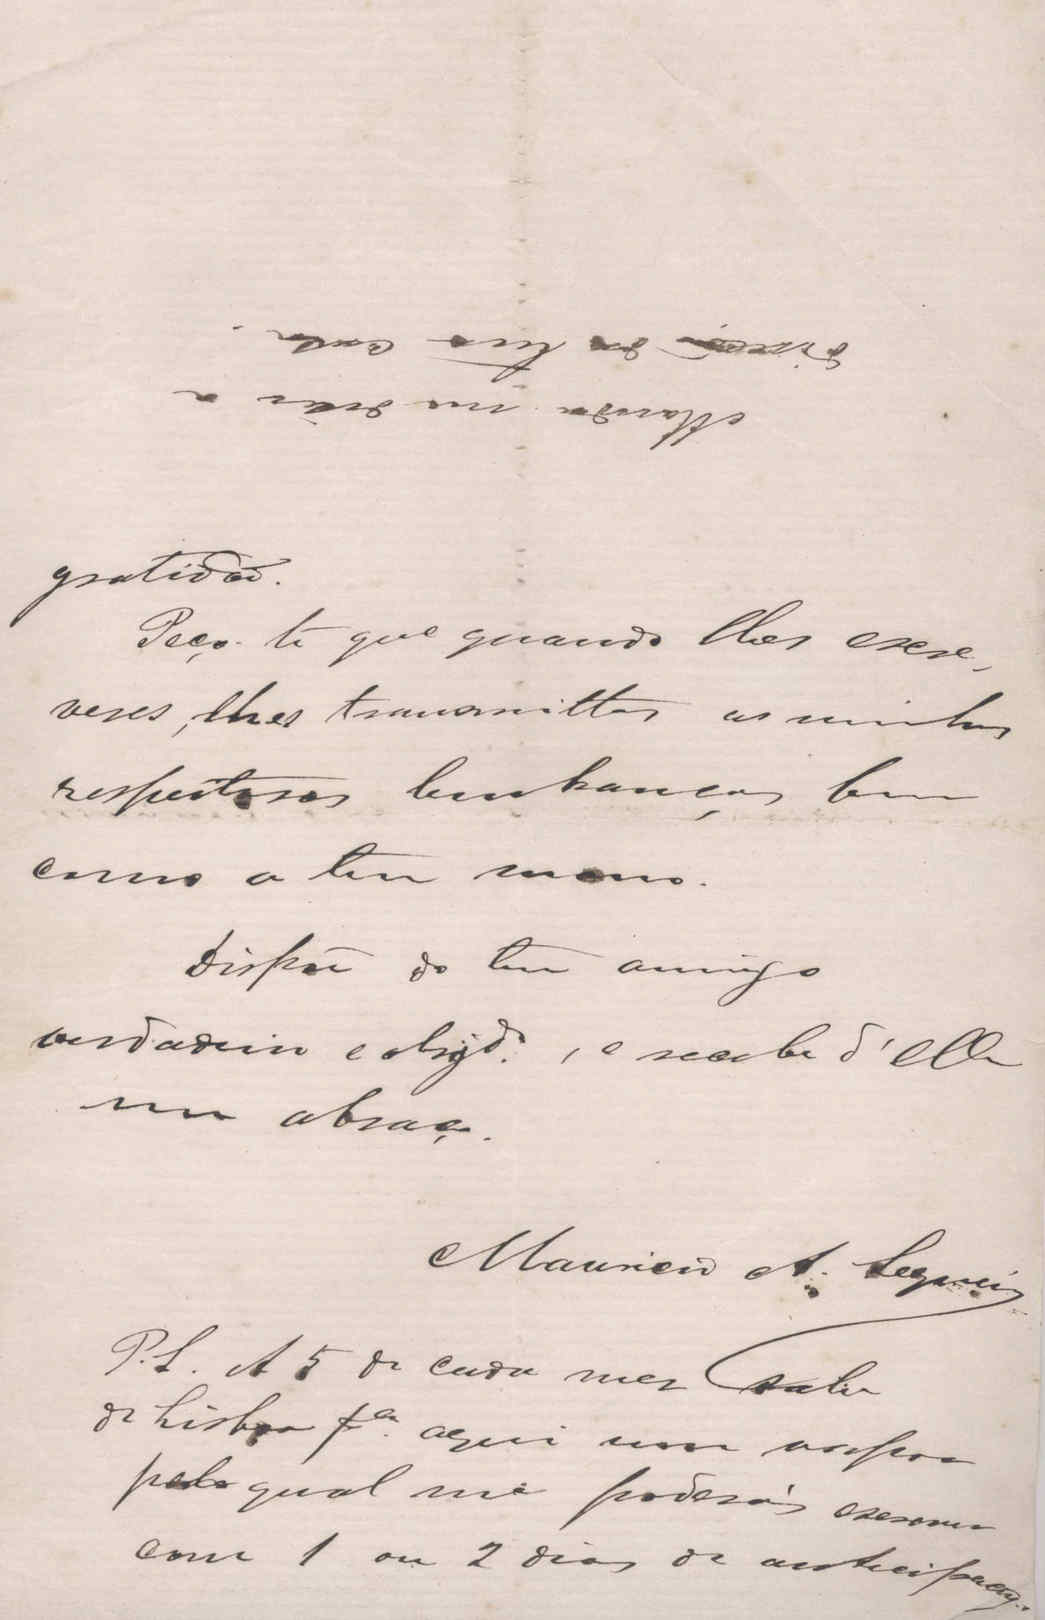 Manda-me dizer a
direcção da tua casa.
gratidão.
Peço-te que quando lhes escre-
veres, lhes transmittas as minhas
respeitosas lembranças bem
como a teu mano.
Dispõe do teu amigo
verdadeiro e obrigdº, e recebe d'elle
um abraço.
Mauricio A. Sequeira
P.S. A 5 de cada mez sahe
de Lisboa pª aqui um vapor
pelo qual me poderás escrever
com 1 ou 2 dias de antecipação.